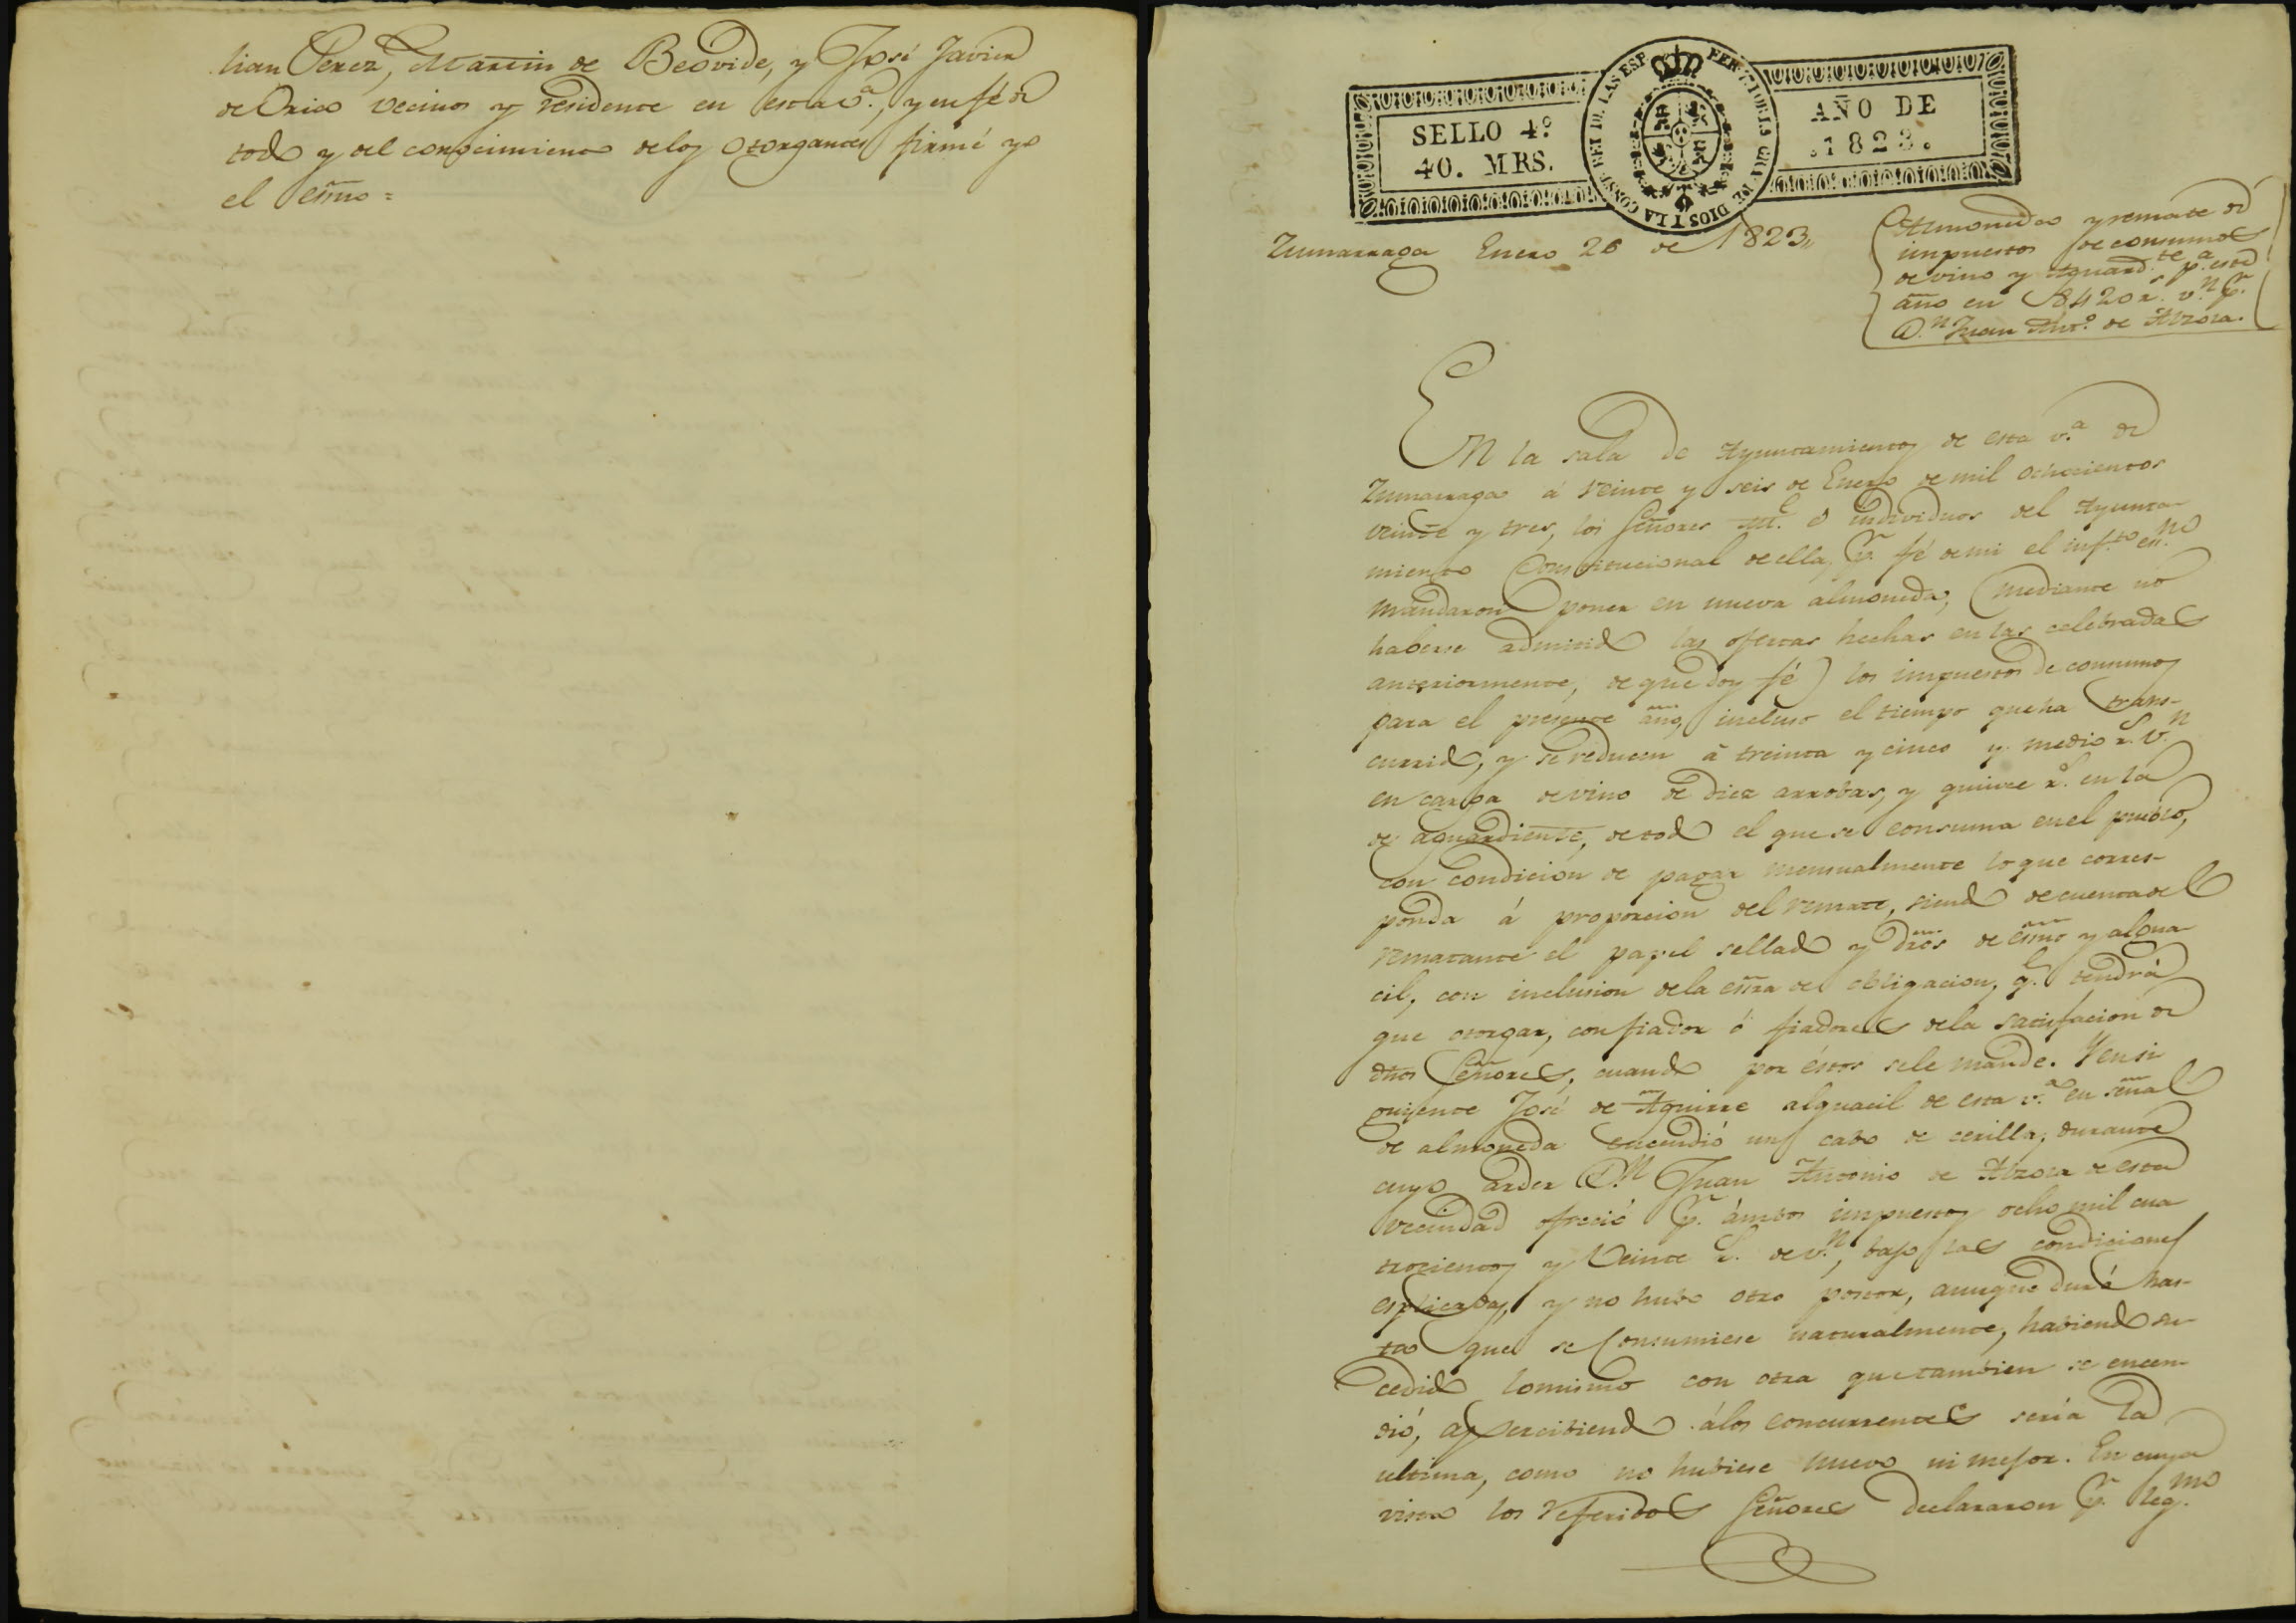 lian Perez, Martin de Beovide, y José Javier
de Oria vecinos y residente en esta v.ª, y en fé de
todo y del conocimiento de los Otorgantes firmé yo
el esñno =
SELLO 4º
40. MRS.
FER. 7 POR LA GRA. DE DIOS Y LA CONST. REI DE LAS ESP.
AÑO DE
.1823.
Zumarraga Enero 26 de 1823,,
Almoneda y remate de
impuestos de consumos
de vino y Aguard.te p.ª este
año en 8420 r.s v.n p.r
D.n Juan Ant.º de Alzola.
En la sala de Ayuntamiento de esta v.ª de
Zumarraga á veinte y seis de Enero de mil ochocientos
veinte y tres, los Señores é individuos del Ayunta-
miento Constitucional de ella, p.r fé de mi el inf.to es.no
mandaron poner en nueva almoneda, (mediante no
haberse admitido las ofertas hechas en las celebradas
anteriormente, de que doy fé) los impuestos de consumos
para el presente año, incluso el tiempo que ha trans-
currido, y se reducen á treinta y cinco y medio r.s v.n
en carga de vino de diez arrobas, y quince r.s en la
de aguardiente, de todo el que se consuma en el pueblo,
con condicion de pagar mensualmente lo que corres-
ponda á proporcion del remate, siendo de cuenta del
rematante el papel sellado y dros de esñno y algua-
cil, con inclusion de la esñra de obligacion, q.e tendrá
que otorgar, con fiador ó fiadores de la satisfacion de
dhos Señores, cuando por éstos se le mande. Y ensi
guiente José de Aguirre alguacil de esta v.ª en señal
de almoneda encendió un cabo de cerilla; durante
cuyo arder D.n Juan Antonio de Alzola de esta
vecindad ofreció p.r ámbos impuestos ocho mil cua
trocientos y veinte r.s de v.n, bajo las condiciones
esplicadas, y no hubo otro postor, aunque duró has-
ta que se consumiese naturalmente, habiendo su-
cedido lo mismo con otra que tambien se encen-
dió, apercibiendo á los concurrentes seria la
ultima, como no hubiese nuevo ni mejor. En cuya
vista los referidos Señores declararon p.r leg.mo